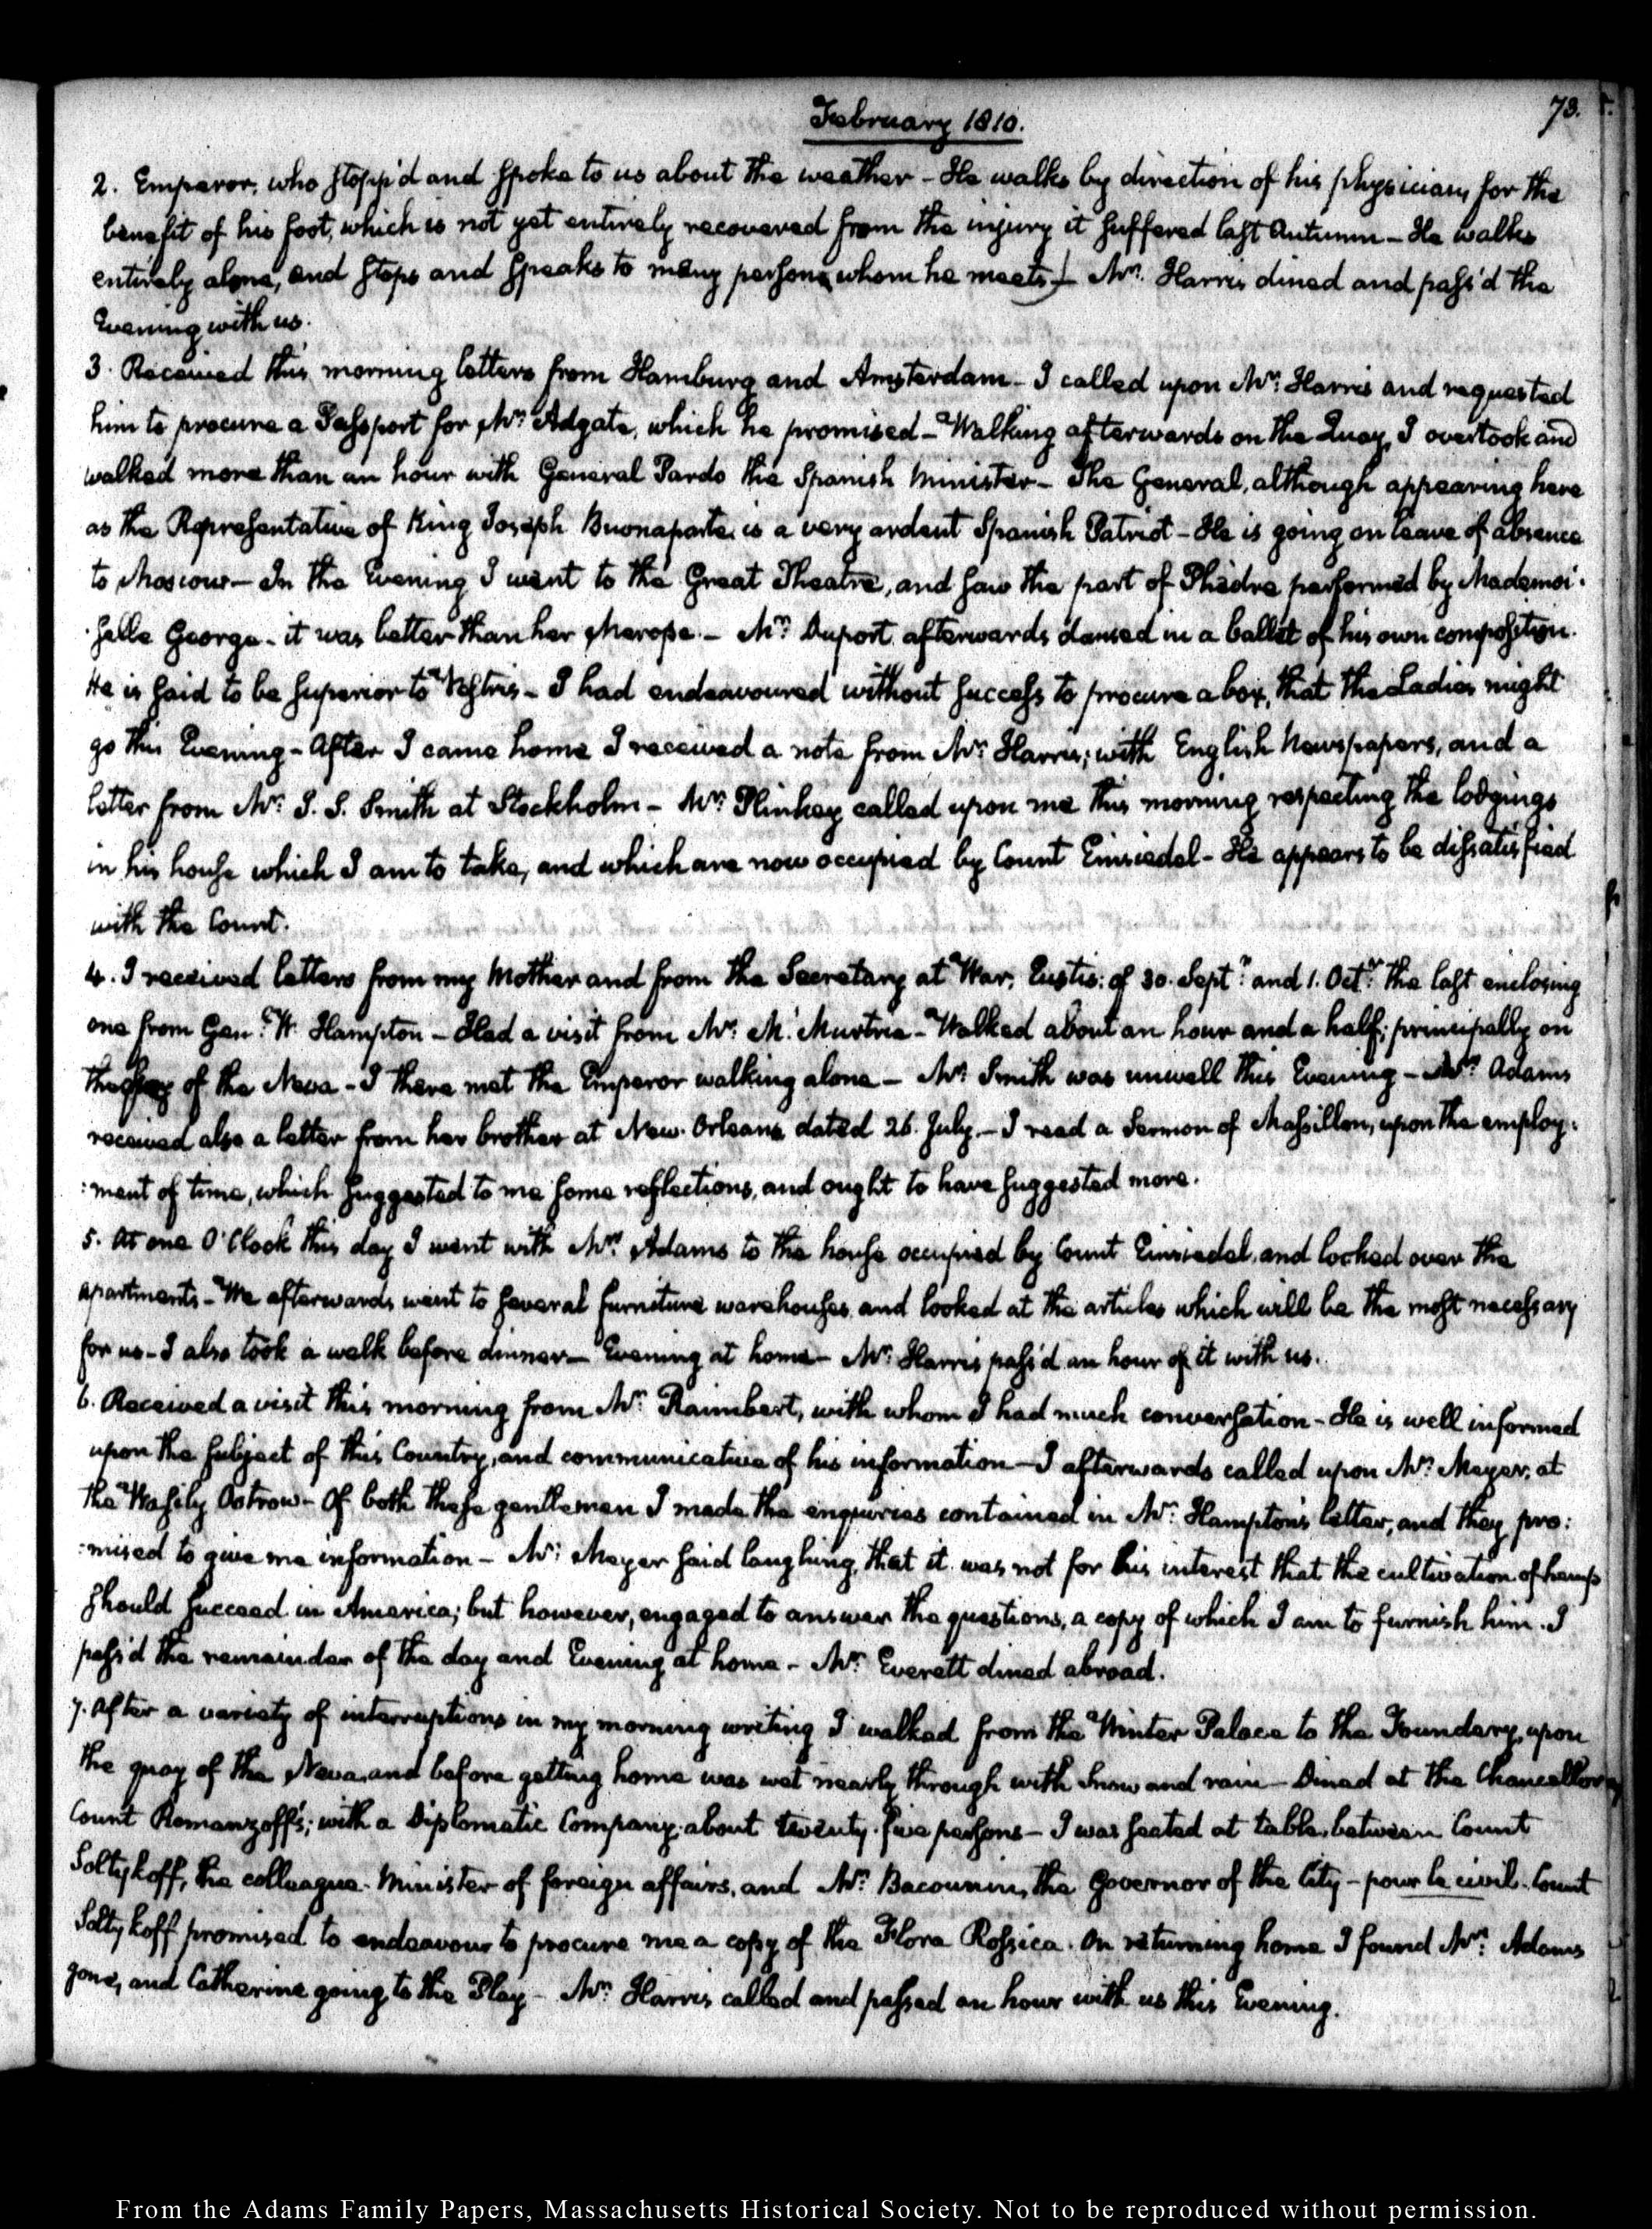 February 1810.
73.
2. Emperor, who stopp'd and spoke to us about the weather - He walks by direction of his physician, for the
benefit of his foot, which is not yet entirely recovered from the injury it suffered last Autumn - He walks
entirely alone, and stops and speaks to many persons whom he meets - Mr. Harris dined and pass'd the
Evening with us.
3. Received this morning letters from Hamburg and Amsterdam - I called upon Mr. Harris and requested
him to procure a Passport for Mr. Adgate, which he promised - Walking afterwards on the Quay, I overtook and
walked more than an hour with General Pardo the Spanish Minister - The General, although appearing here
as the Representative of King Joseph Buonaparte is a very ardent Spanish Patriot - He is going on leave of absence
to Moscow - In the Evening I went to the Great Theatre, and saw the part of Phèdre performed by Mademoi-
-selle George - it was better than her Merope. - Mr. Duport afterwards danced in a ballet of his own composition.
He is said to be superior to Vestris - I had endeavoured without success to procure a box, that the Ladies might
go this Evening - After I came home I received a note from Mr. Harris; with English Newspapers, and a
letter from Mr. J. S. Smith at Stockholm - Mr. Plinkey called upon me this morning respecting the lodgings
in his house which I am to take, and which are now occupied by Count Einsiedel - He appears to be dissatisfied
with the Count.
4. I received letters from my Mother and from the Secretary at War, Eustis: of 30. Septr. and 1. Octr. the last enclosing
one from Genl. W. Hampton - Had a visit from Mr. McMurtrie - Walked about an hour and a half; principally on
the of the Neva - I there met the Emperor walking alone - Mr. Smith was unwell this Evening - Mrs. Adams
received also a letter from her brother at New-Orleans dated 26. July. - I read a Sermon of Massillon, upon the employ:
:ment of time, which suggested to me some reflections, and ought to have suggested more.
5. At one O'Clock this day I went with Mrs. Adams to the house occupied by Count Einsiedel, and looked over the
apartments - We afterwards went to several furniture warehouses, and looked at the articles which will be the most necessary
for us - I also took a walk before dinner - Evening at home - Mr. Harris pass'd an hour of it with us.
6. Received a visit this morning from Mr. Raimbert, with whom I had much conversation - He is well informed
upon the subject of this Country, and communicative of his information - I afterwards called upon Mr. Meyer, at
the Wasily Ostrow - Of both these gentlemen I made the enquiries contained in Mr. Hampton's letter, and they pro:
:mised to give me information - Mr. Meyer said laughing, that it was not for his interest that the cultivation of hemp
should succeed in America; but however, engaged to answer the questions, a copy of which I am to furnish him. I
pass'd the remainder of the day and Evening at home - Mr. Everett dined abroad.
7. After a variety of interruptions in my morning writing I walked from the Winter Palace to the Foundery, upon
the quay of the Neva, and before getting home was wet nearly through with Snow and rain - Dined at the Chancellor
Count Romanzoff's; with a Diplomatic Company, about twenty-five persons - I was seated at table, between Count
Soltykoff, the colleague-Minister of foreign affairs, and Mr. Bacounin, the Governor of the City - pour le civil. Count
Soltykoff promised to endeavour to procure me a copy of the Flora Rossica. On returning home I found Mrs. Adams
gone, and Catherine going to the Play - Mr. Harris called and passed an hour with us this Evening.
From the Adams Family Papers, Massachusetts Historical Society. Not to be reproduced without permission.